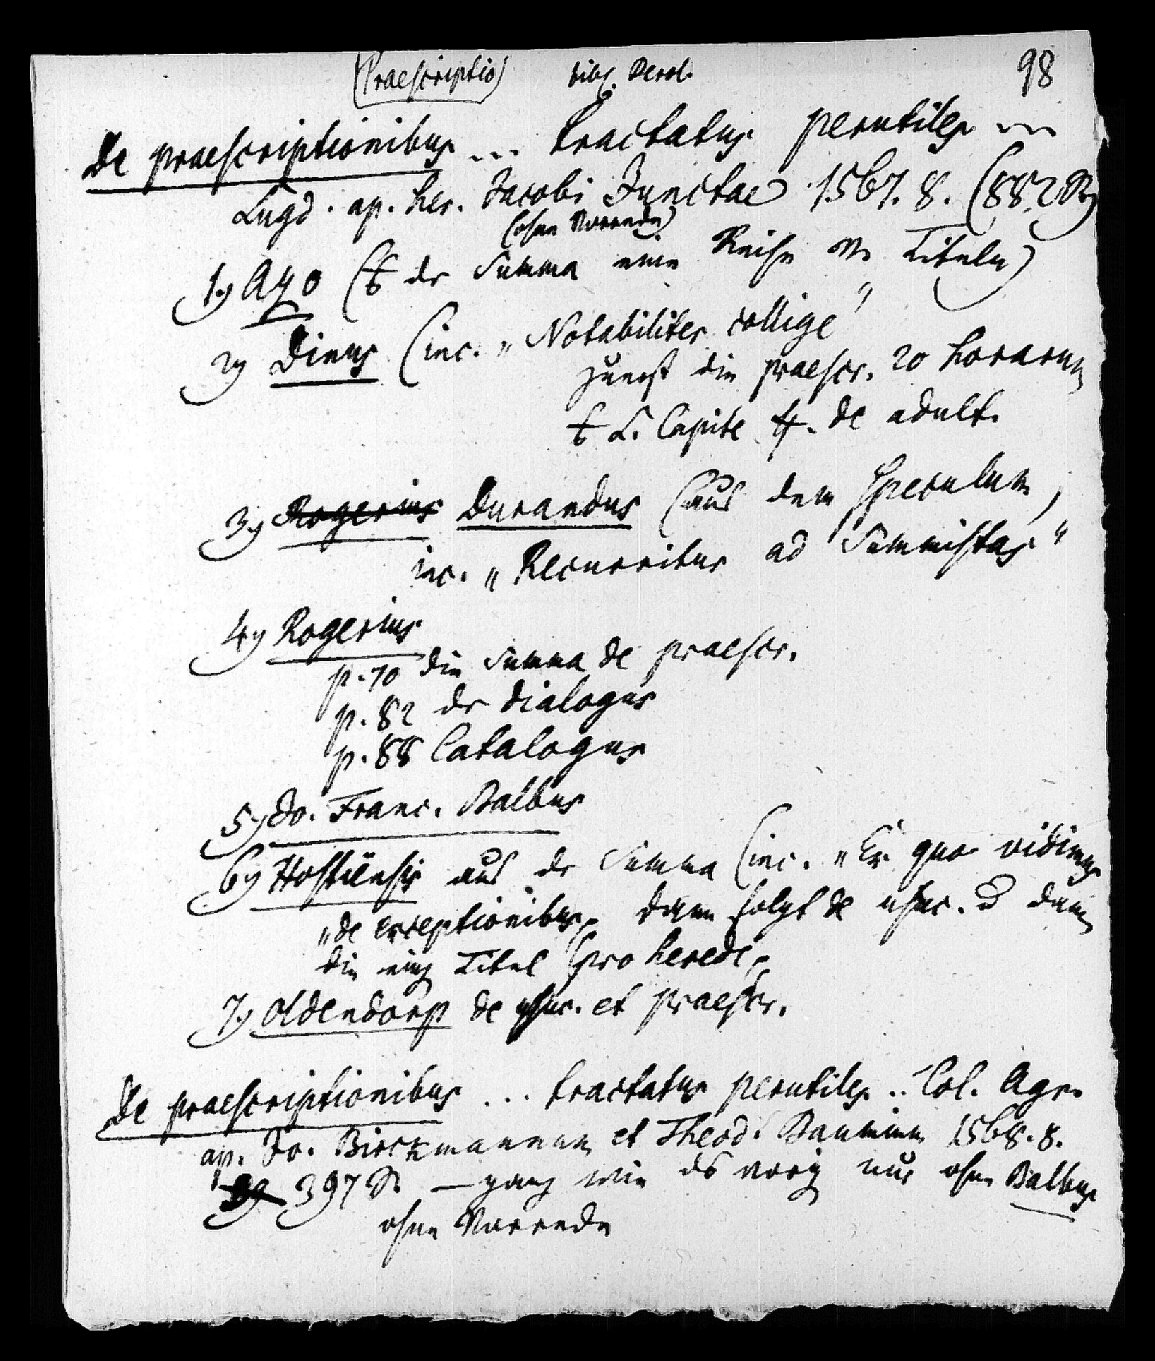 (Praescriptio) bibl. Berol. 98
De praescriptionibus ... tractatus perutiles ...
Lugd. ap. her. Jacobi Junctae 1567. 8. (882 S)
(ohne Vorrede)
1) Azo (aus der Summa eine Reihe von Titeln)
2) Dinus (inc. „Notabiliter collige"
zuerst die praescr. 20 horarum
L. Capite ff. de adult.
3) Rogerius Durandus (aus dem Speculum,
inc. „Recurritur ad Summistas"
4) Rogerius
p. 70 die Summa de praescr.
p. 82 der dialogus
p. 88 Catalogus
5) Jo. Franc. Balbus
6) Hostiensis aus der Summa (inc. „Ex quo vidimus
„de exceptionibus. dann folgt de usuc. u dann
die einz Titel (pro herede,
7) Oldendorp de usuc. et praescr.
De praescriptionibus ... tractatus perutiles .. Col. Agr.
ap. Jo. Birckmannum et Theod. Baumium 1568. 8.
397 S. — ganz wie das vorig nur ohne Balbus
ohne Vorrede